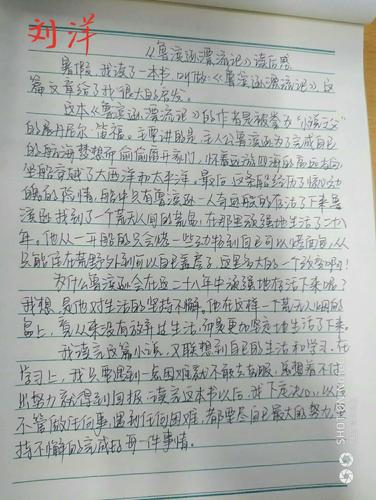 刘洋
《鲁滨逊漂流记》读后感
暑假,我读了一本书,叫做《鲁滨逊漂流记》这
篇文章给了我很大的启发。
这本《鲁滨逊漂流记》的作者是被誉为"小说之父"
的丹尼尔·笛福。主要讲的是主人公鲁滨逊为了完成自己
的航海梦想而偷偷离开家门,怀着远游四海的高远志向
坐船穿越了大西洋和太平洋。最后这条船经历了惊心动
魄的险情,船中只有鲁滨逊一人奇迹般的存活了下来鲁
滨逊找到了一个荒无人间的荒岛,在那里顽强地生活了二十八
年。他从一开始的只会搭一些动物到自己可以烤面包,从
只能住在荒野外到可以自己盖房子,这是多大的一个改变啊!
为什么鲁滨逊会在这二十八年中顽强地存活下来呢?
我想是他对生活的坚持不懈。他在这样一个荒无人烟的
岛上,看从来没有放弃过生活,而是更加坚定地生活了下来。
我读完这篇小说,又联想到自己的生活和学习。在
学习上,我只要遇到一点困难就不敢去克服,总想着不付
出努力就得到回报。读完这本书以后,我下定决心,以后
不管做任何事,遇到任何困难,都要尽自己最大的努力坚
持不懈的完成好每一件事情。
SHOT ON